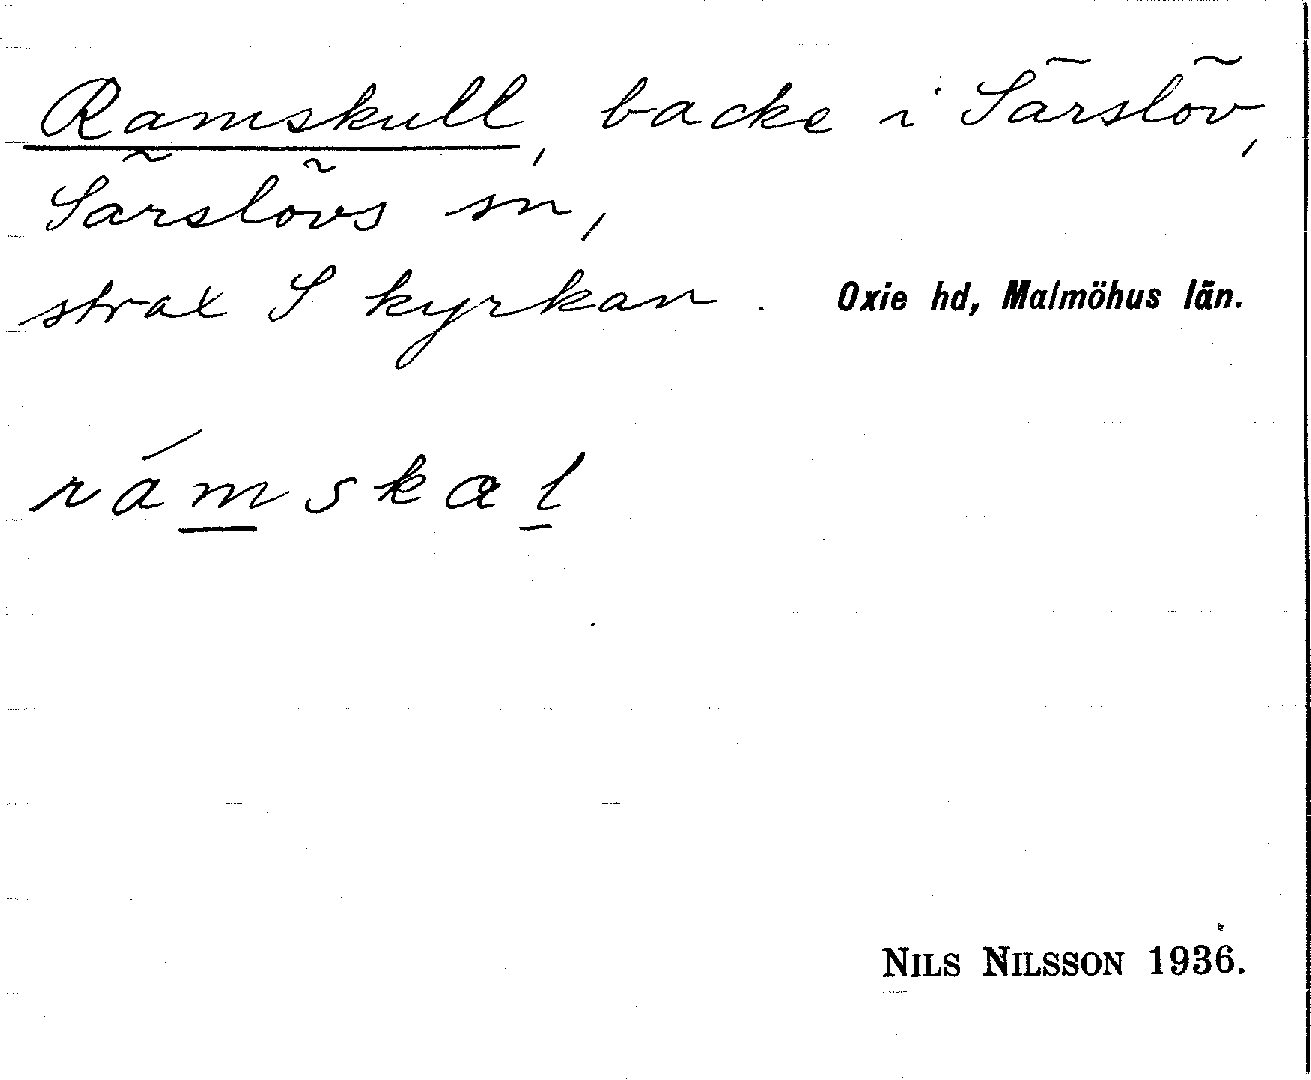 Ramskull, backe i Särslöv,
Särslövs sn,
strax S kyrkan. Oxie hd, Malmöhus län.
rámskæl
NILS NILSSON 1936.